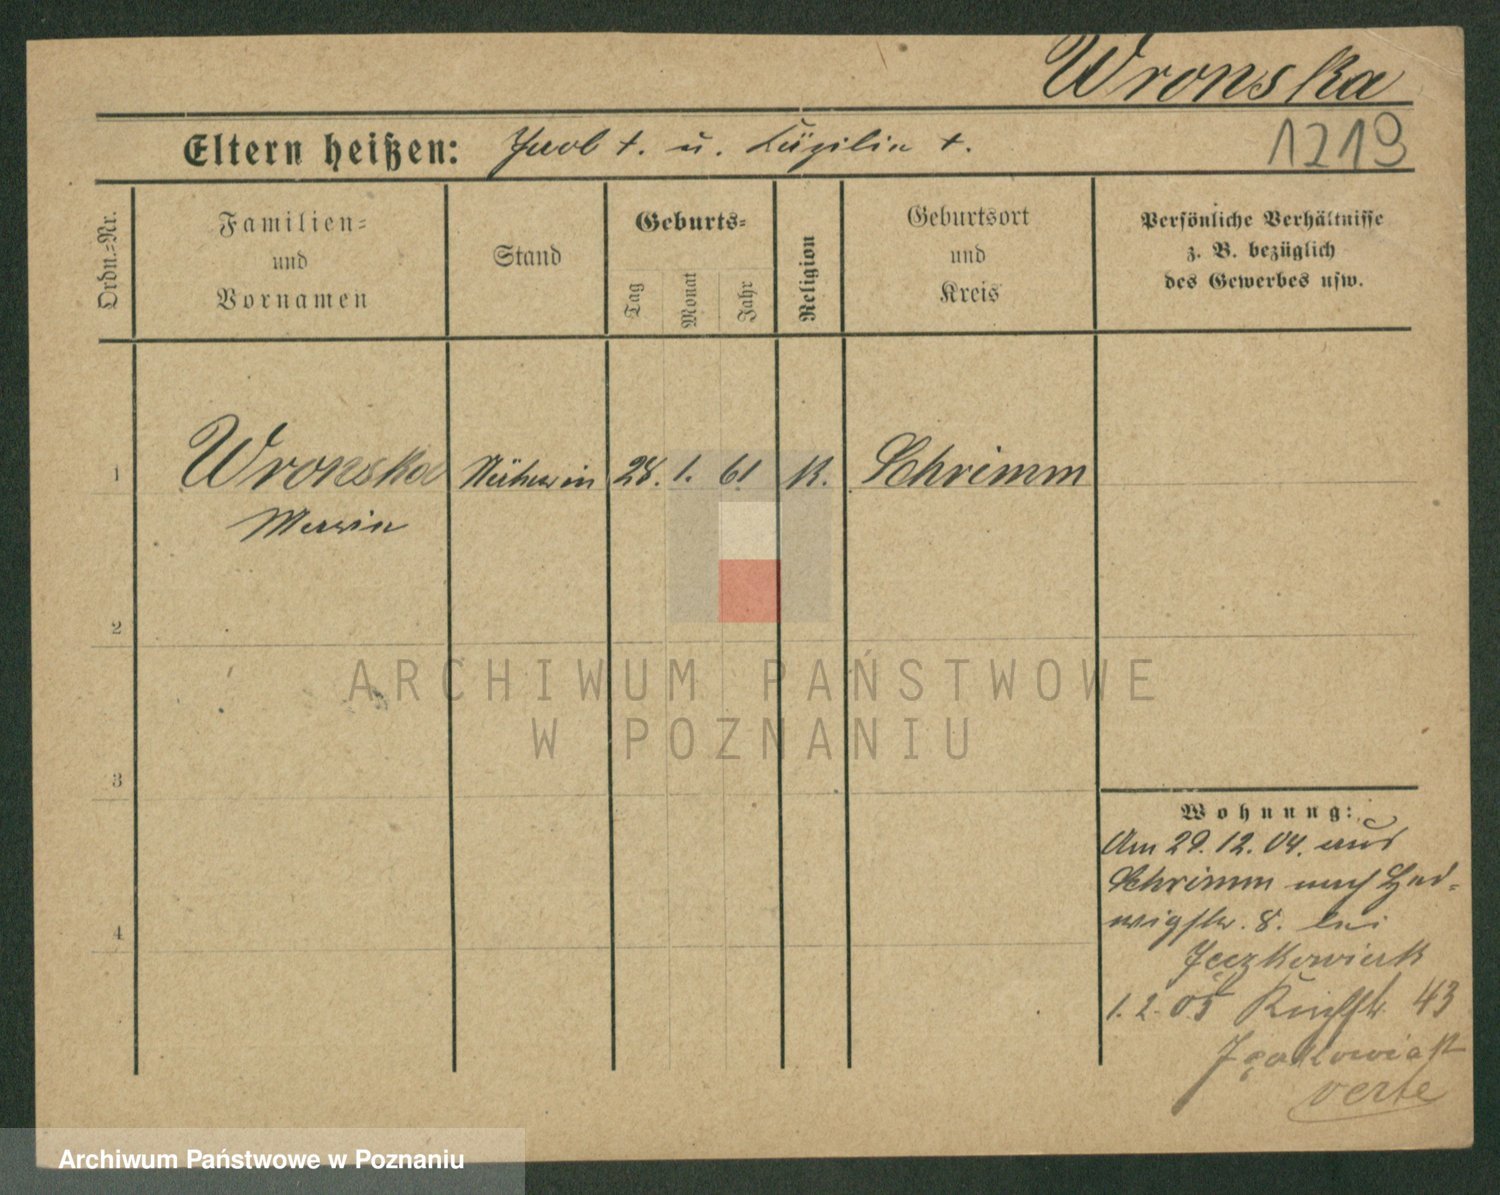 Wronska
Eltern heißen: Jacob †. u. Cäzilia †.
1219
Ordn.-Nr.
Familien-
und
Vornamen
Stand
Geburts-
Tag
Monat
Jahr
Religion
Geburtsort
und
Kreis
Persönliche Verhältnisse
z. B. bezüglich
des Gewerbes usw.
1
Wronska Näherin 28. 1. 61 K. Schrimm
2
3
4
Wohnung:
Am 29. 12. 04. aus
Schrimm nach Hed-
wigstr. 8. bei
1. 2. 05 43
verte
ARCHIWUM PAŃSTWOWE
W POZNANIU
Archiwum Państwowe w Poznaniu